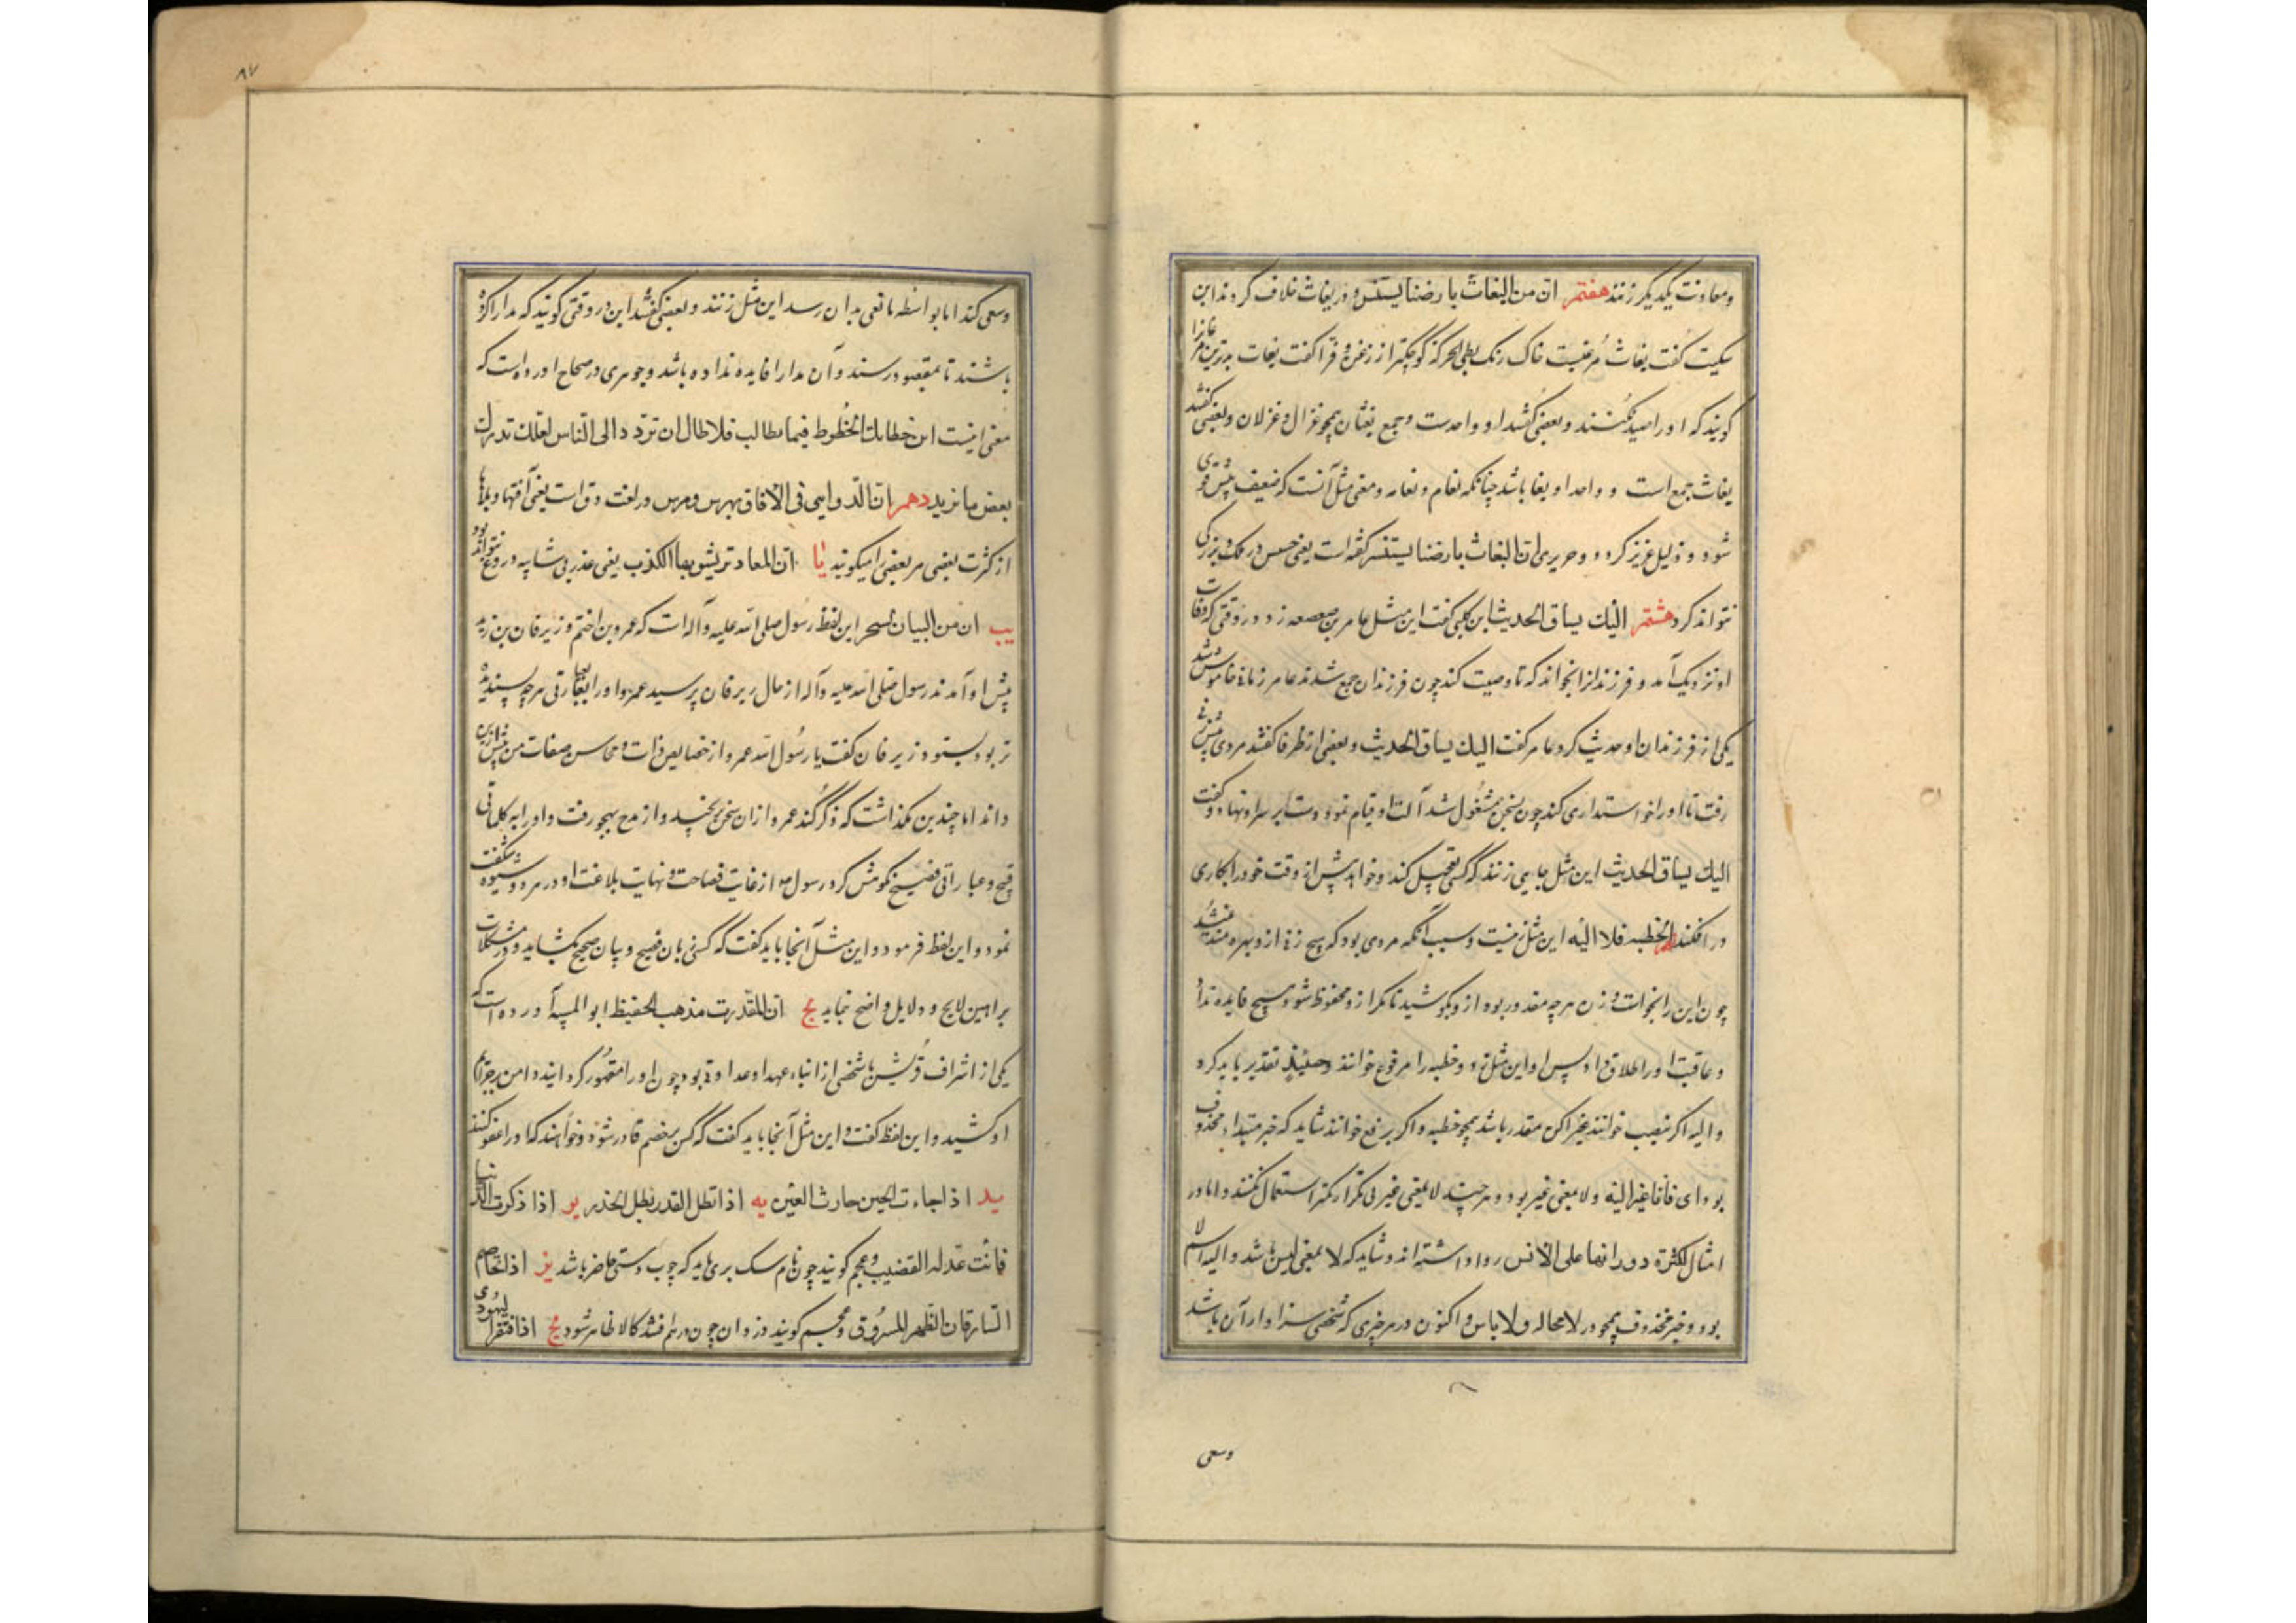 ومعاونت یکدیگر زنند هفتم ان من البغاث بارضنا یستنسر و در بغاث خلاف کردند ابن
سکیت گفت بغاث مرغیست خاک رنک بطی الحرکة کوچکتر از زغن و فرا گفت بغاث بدترین مرغانرا
کویند که اورا صید نکنند و بعضی کفتند او واحدست وجمع بغثان همچو غزال و غزلان وبعضی کفتند
بغاث جمع است و واحد او بغا باشد چنانکه نعام و نعامه ومعنی مثل آنست که ضعیف پیش ما قوی
شود و ذلیل عزیز کردد وحریری ان البغاث بارضنا یستنسر گفته است یعنی خسیس در ملک ما بزرکی
نتواند کرد هشتم الیك یساق الحدیث ابن کلبی کفت این مثل عامر بن صعصعه زد در وقتی که وفات
او نزدیک آمد و فرزندانرا بخواند که تا وصیت کند چون فرزندان جمع شدند عامر زمانی خاموش شد
یکی از فرزندان او حدیث کرد عامر کفت الیك یساق الحدیث وبعضی از ظرفا کفتند مردی پیش زنی
رفت تا اورا خواستداری کند چون بسخن مشغول شد آلت او قیام نمود دست بر سر او نهاد و کفت
الیك یساق الحدیث این مثل جایی زنند که کسی تعجیل کند وخواهد پیش از وقت خود را بکاری
در افکند الخطبه فلا الیه این مثل زنیست وسبب آنکه مردی بود که هیچ زنی ازو بهره مند نمیشد
چون این را بخواست و زن هرچه مقدور بود ازو بکوشید تا مکر ازو محفوظ شود هیچ فایده نداد
وعاقبت اورا طلاق داد پس او این مثل زد وخطبه را مرفوع خوانند وحینئذ تقدیر باید کرد
والیه اکر بنصب خوانند بخیر اکن مقدر باشد همچو خطبه واکر برفع خوانند شاید که خبر مبتداء محذوف
بود ای فأنا غیر الیه ولا بمعنی غیر بود وهرچند لا بمعنی غیر بی تکرار کمتر استعمال کنند واما در
امثال لکثرة دورانها علی الالسن روا داشته اند وشاید که لا بمعنی لیس باشد والیه اسم لا
بود وخبر محذوف همچو در لا محاله ولا باس و اکنون در هر چیزی که شخصی سزاوار آن باشد
وسعی
۸۷
وسعی کند اما بواسطه مانعی بدان رسد این مثل زنند وبعضی کفتند این در وقتی کویند که مدارا کرده
باشند تا بمقصود رسند وآن مدارا فایده نداده باشد وجوهری در صحاح آورده است که
معنی اینست ان خطاتك الحظوظ فیما تطالب فلا طال ان تردد الی الناس لعلك تدرك
بعض ما ترید دهم ان الدواهی فی الآفاق تهترس و هرس در لغت دق است یعنی آفتها وبلاها
از کثرت بعضی مر بعضی را میکوبند یا ان المعاذیر یشوبها الکذب یعنی عذر بی شایبه دروغ نتواند بود
یب ان من البیان لسحرا این لفظ رسول صلی الله علیه وآله است که عمرو بن اختم وزبرقان بن زید
پیش او آمدند رسول صلی الله علیه وآله از حال زبرقان پرسید عمرو اورا بعبارتی هر چه پسندیده
تر بود بستود زبرقان کفت یا رسول الله عمرو از خصایص ذات و محاسن صفات من پیش ازین
داند اما چندین نکذاشت که ذکر کند عمرو ازان سخن برنجید واز مدح بهجو رفت واورا به کلماتی
قبیح وعباراتی فضیح نکوهش کرد رسول ص از غایت فصاحت ونهایت بلاغت او در هر دو شیوه شکفت
نمود واین لفظ فرمود واین مثل آنجا باید کفت که کسی بزبان فصیح وبیان صحیح بکشاید ودر مشکلات
براهین لایح و دلایل واضح نماید یج ان المقدرت مذهب الحفیظ ابو الهیثم آورده است که
یکی از اشراف قریش با شخصی از ابناء عهد او عداوتی بود چون اورا مقهور کردانید دامن بر جرائم
او کشید واین لفظ کفت و این مثل آنجا باید کفت که کسی بر خصم قادر شود وخواهند که اورا عفو کنند
ید اذا جاءت الحین حارث العین یه اذا نطل القدر بطل الحذر یو اذا ذکرت الذئب
فأنت عد له القضیب وعجم کویند چون نام سک بری باید که چوب دستی حاضر باشد یز اذا تخاصم
السارقان لظهر المسروق وعجم کویند دزدان چون درهم افتند کالا ظاهر شود یح اذا افتقر الیهودی